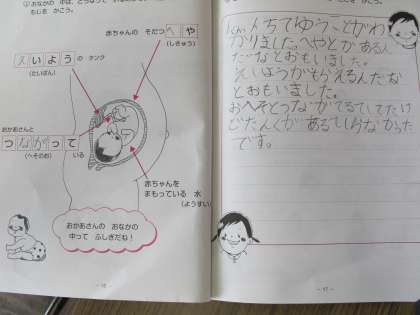 ① おなかの 中は、どうなって
もじを かこう。
赤ちゃんの そだつ へや
(しきゅう)
えいよう の タンク
(たいばん)
おかあさんと
つながって
(へそのお) いる
赤ちゃんを
まもっている 水
(ようすい)
おかあさんの おなかの
中って ふしぎだね！
かこう。
ちてゆうことがわ
かりました。へやとかあるん
だなとおもいました。
えいようがもらえるんだな
とおもいました。
おへそとつながてるてしてたけ
どたんくがあるてしらなかった
です。